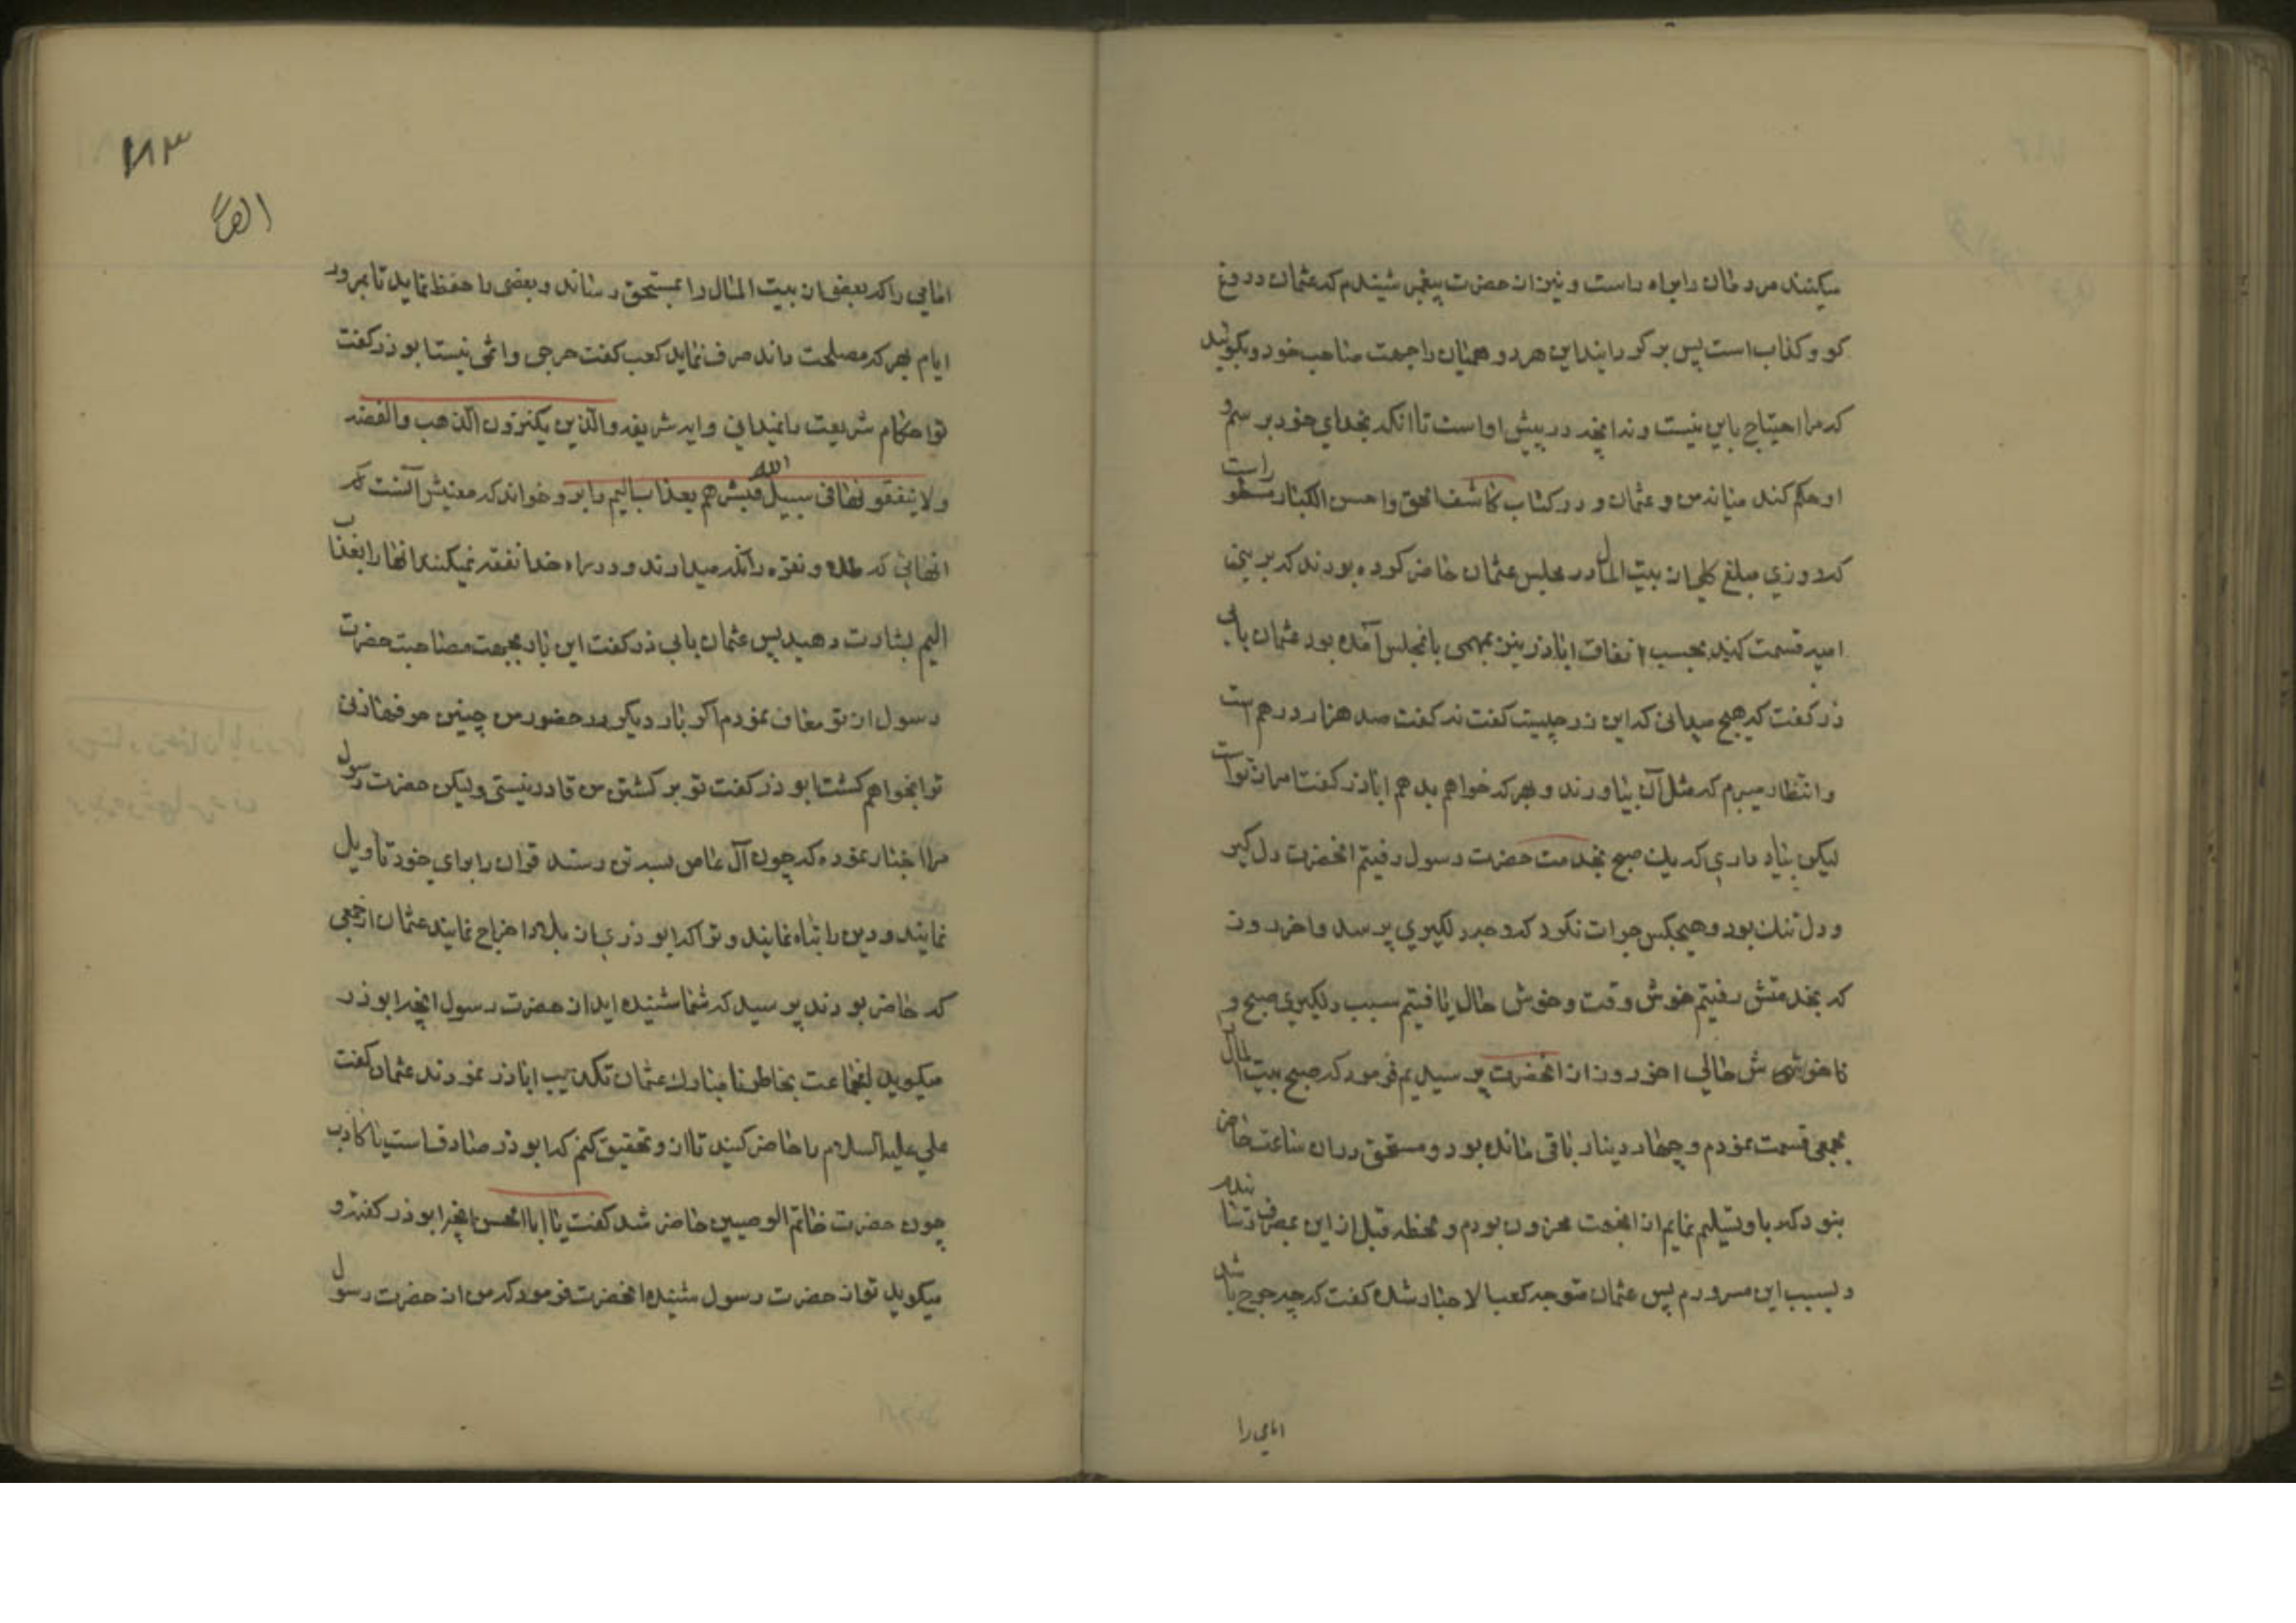 میکنند مردمان را براه راست و نیز از حضرت پیغمبر شنیدم که عثمان دروغ
کو و کذاب است پس بر کردانید این هر دو همیان را جهت صاحب خود و بکوئید
که مرا احتیاج باین نیست و ندا بخد در پیش او است تا انکه بخدای خود برسم و
او حکم کند میانه من و عثمان و در کتاب کاشف الحق و احسن الکبار مسطور است
که روزی مبلغ کلی از بیت المال در مجلس عثمان حاضر کرده بودند که بر بنی
امیه قسمت کنند بحسب اتفاق اباذر نیز بمهمی بانمجلس آمده بود عثمان بابی
ذر کفت که هیچ میدانی که این زر چیست کفت نه کفت صد هزار درهم است
و انتظار میبرم که مثل آن بیاورند و بهر که خواهم بدهم اباذر کفت امر از تو است
لیکن بیاد داری که یک صبح بخدمت حضرت رسول رفتیم انحضرت دل کیر
و دل تنک بود و هیچکس جرات نکرد که وجه دلکیری پرسد و اخر روز
که بخدمتش رفتیم خوش وقت و خوش حال یافتیم سبب دلکیری صبح و
خوش حالی اخر روز از انحضرت پرسیدیم فرمود که صبح بیت المال
بجمعی قسمت نمودم و چهار دینار باقی مانده بود و مستحق در ان ساعت حاضر
نبود که باو تسلیم نمایم از انجهت محزون بودم و لحظه قبل از این بمصرف رسانیدم
و بسبب این مسرورم پس عثمان متوجه کعب الاحبار شده کفت که چه حرج باشد
امامی را
۱۸۳
امامی را که بعضی از بیت المال را بمستحق رساند و بعضی را حفظ نماید تا بمرور
ایام بهر که مصلحت داند صرف نماید کعب کفت حرجی و اثمی نیست ابوذر کفت
تو احکام شریعت را نمیدانی و ایه شریفه والذین یکنزون الذهب والفضه
ولا ینفقونها فی سبیل الله فبشرهم بعذاب الیم را بر و خواند که معنیش آنست که
انهائی که طلا و نقره را نکه میدارند و در راه خدا نفقه نمیکنند انها را بعذاب
الیم بشارت دهید پس عثمان بابی ذر کفت این بار بجهت مصاحبت حضرت
رسول از تو معاف نمودم اکر بار دیکر در حضور من چنین حرفها زنی
ترا بخواهم کشت ابوذر کفت تو بر کشتن من قادر نیستی ولیکن حضرت رسول
مرا اخبار نموده که چون آل عاص بسه تن رسند قران را برای خود تاویل
نمایند و دین را تباه نمایند و ترا که ابوذری از بلاد اخراج نمایند عثمان از جمعی
که حاضر بودند پرسید که شما شنیده اید از حضرت رسول انچه ابوذر
میکوید انجماعت بخاطر نامبارک عثمان تکذیب اباذر نمودند عثمان کفت
علی علیه السلام را حاضر کنید تا از و تحقیق کنم که ابوذر صادق است یا کاذب
چون حضرت خاتم الوصیین حاضر شد کفت یا ابا الحسن انچه ابوذر کفته و
میکوید تو از حضرت رسول شنیده انحضرت فرمود که من از حضرت رسول